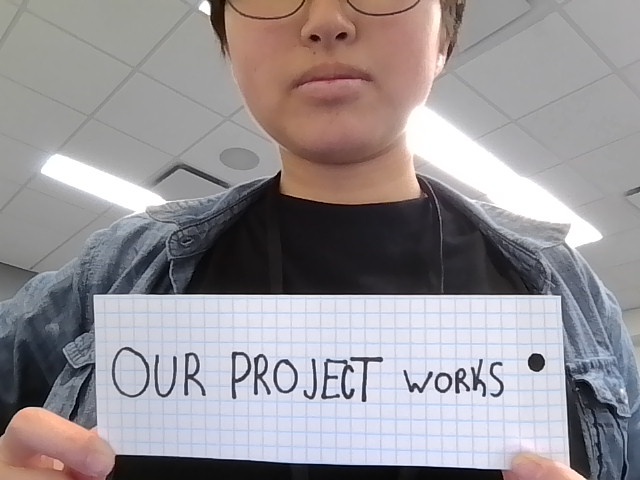 OUR PROJECT WORKS